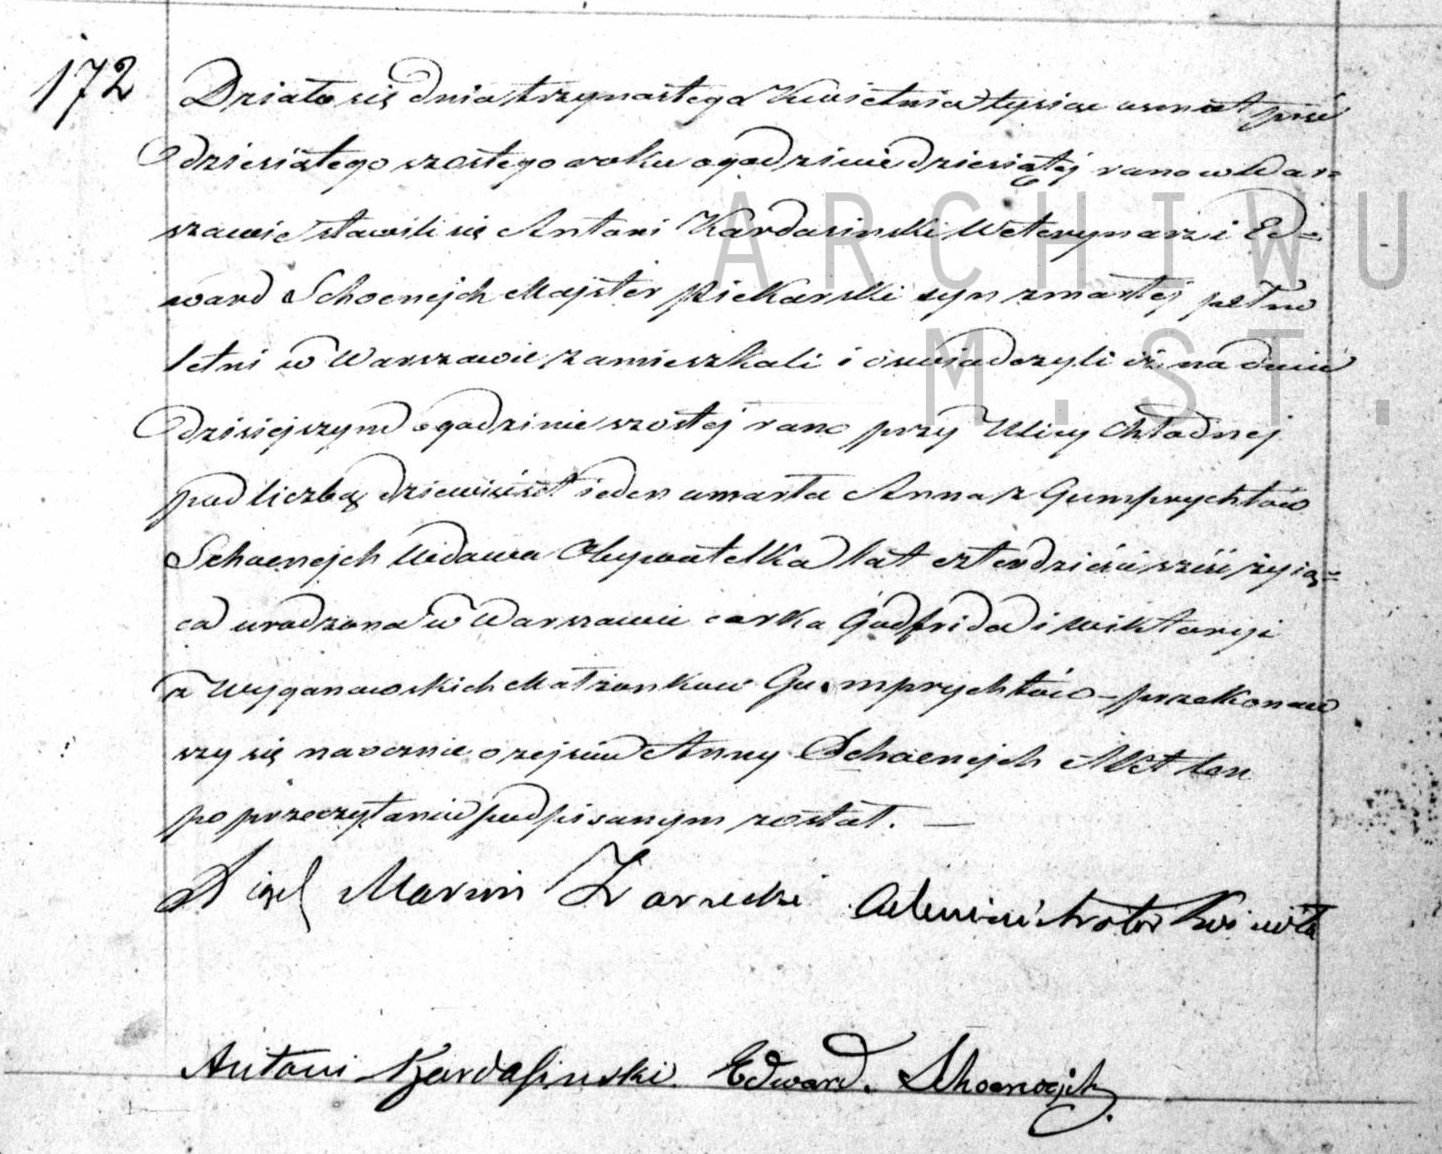 172
Działo się dnia trzynastego Kwietnia tysiąc osmset pięć
dziesiątego szostego roku o godzinie dziesiątej rano w War=
szawie stawili się Antoni Kardasinski Weterynarz i Ed=
ward Schoeneich Majster Piekarski syn zmarłej pełno
letni w Warszawie zamieszkali i oswiadczyli iż na dniu
dzisiejszym o godzinie szostej rano przy Ulicy Chłodnej
pod liczbą dziewięćset ieden umarła Anna z Gumprychtów
Schoeneich Wdowa Obywatelka lat czterdzieści sześć żyią=
ca urodzona w Warszawie corka Godfrida i Wiktoryi
z Wyganowskich Małżonkow Gumprychtów – przekonaw
szy się naocznie o zejściu Anny Schoeneich Akt ten
po przeczytaniu podpisanym został. —
Marcin Zarzecki Administrator
Antoni Kardasinski. Edward. Schoeneich.
ARCHIWU
M.ST.